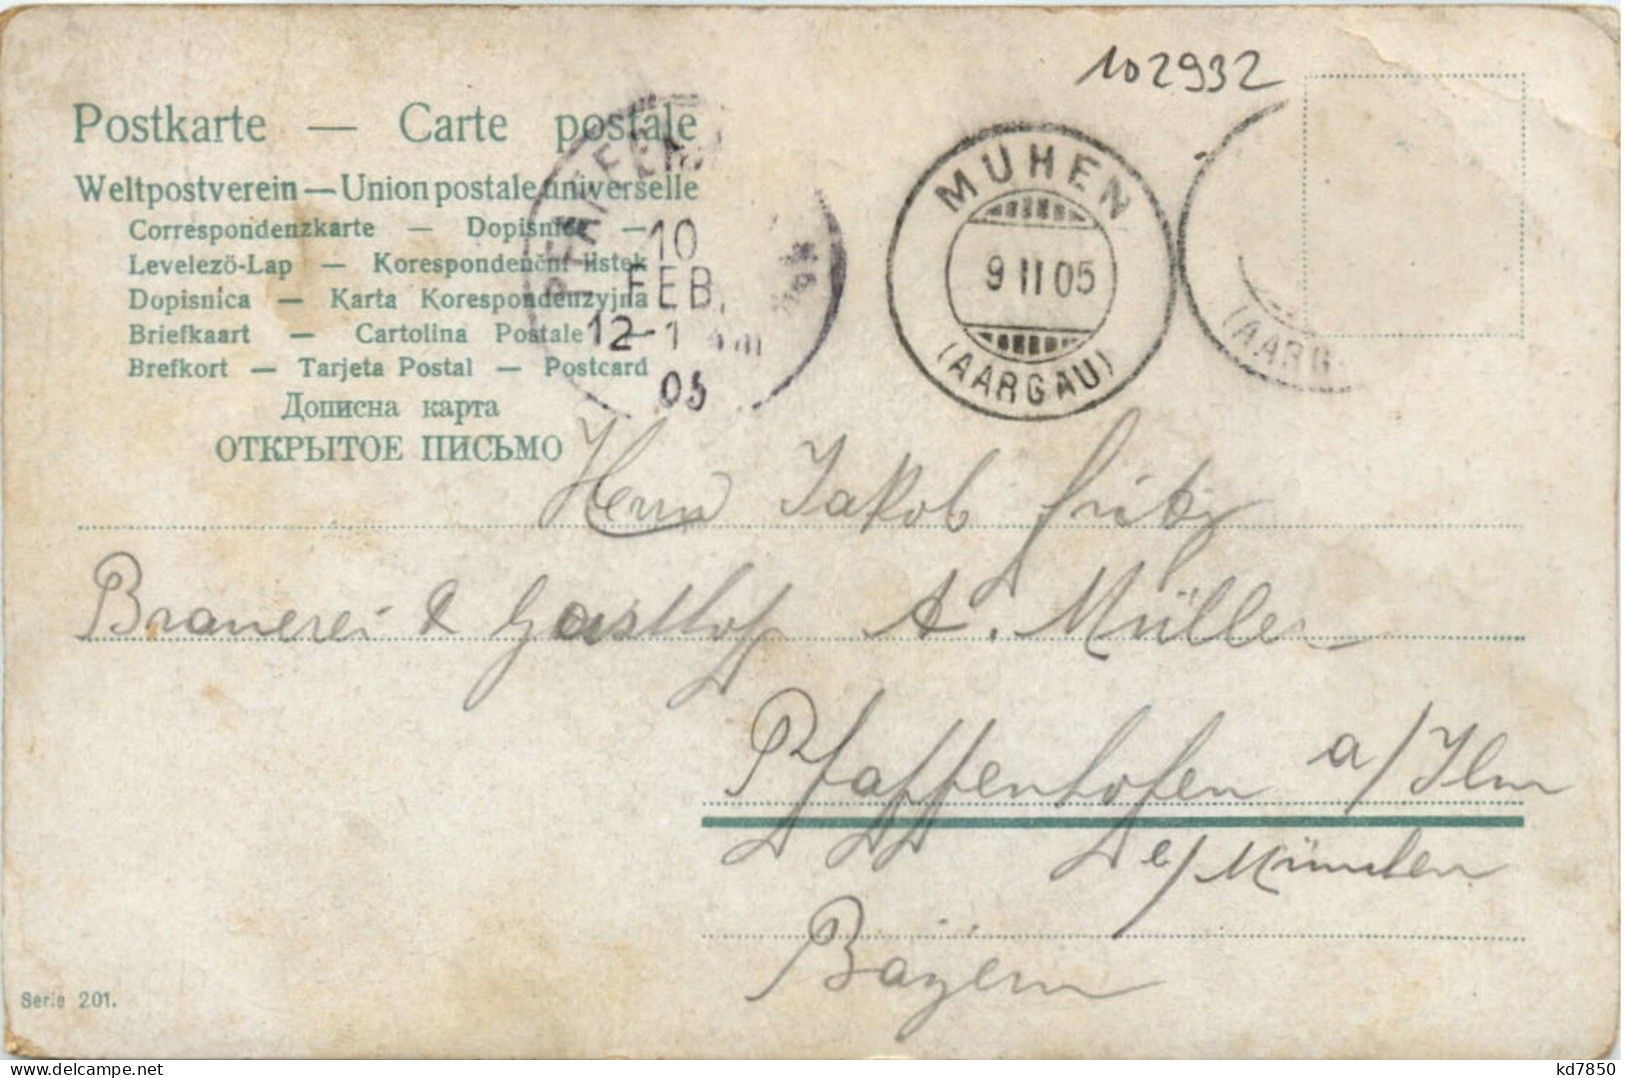 102932
Postkarte — Carte postale
Weltpostverein — Union postale universelle
Correspondenzkarte — Dopisnice —
Levelezö-Lap — Korespondenční listek
Dopisnica — Karta Korespondenzyjna
Briefkaart — Cartolina Postale —
Brefkort — Tarjeta Postal — Postcard
Дописна карта
ОТКРЫТОЕ ПИСЬМО
10
FEB.
12-1
05
MUHEN
9 II 05
(AARGAU)
(AARG
Herrn Jakob Fritz
Brauerei & Gasthof A. Müller
Pfaffenhofen a/Ilm
b/München
Bayern
Serie 201.
kd7850